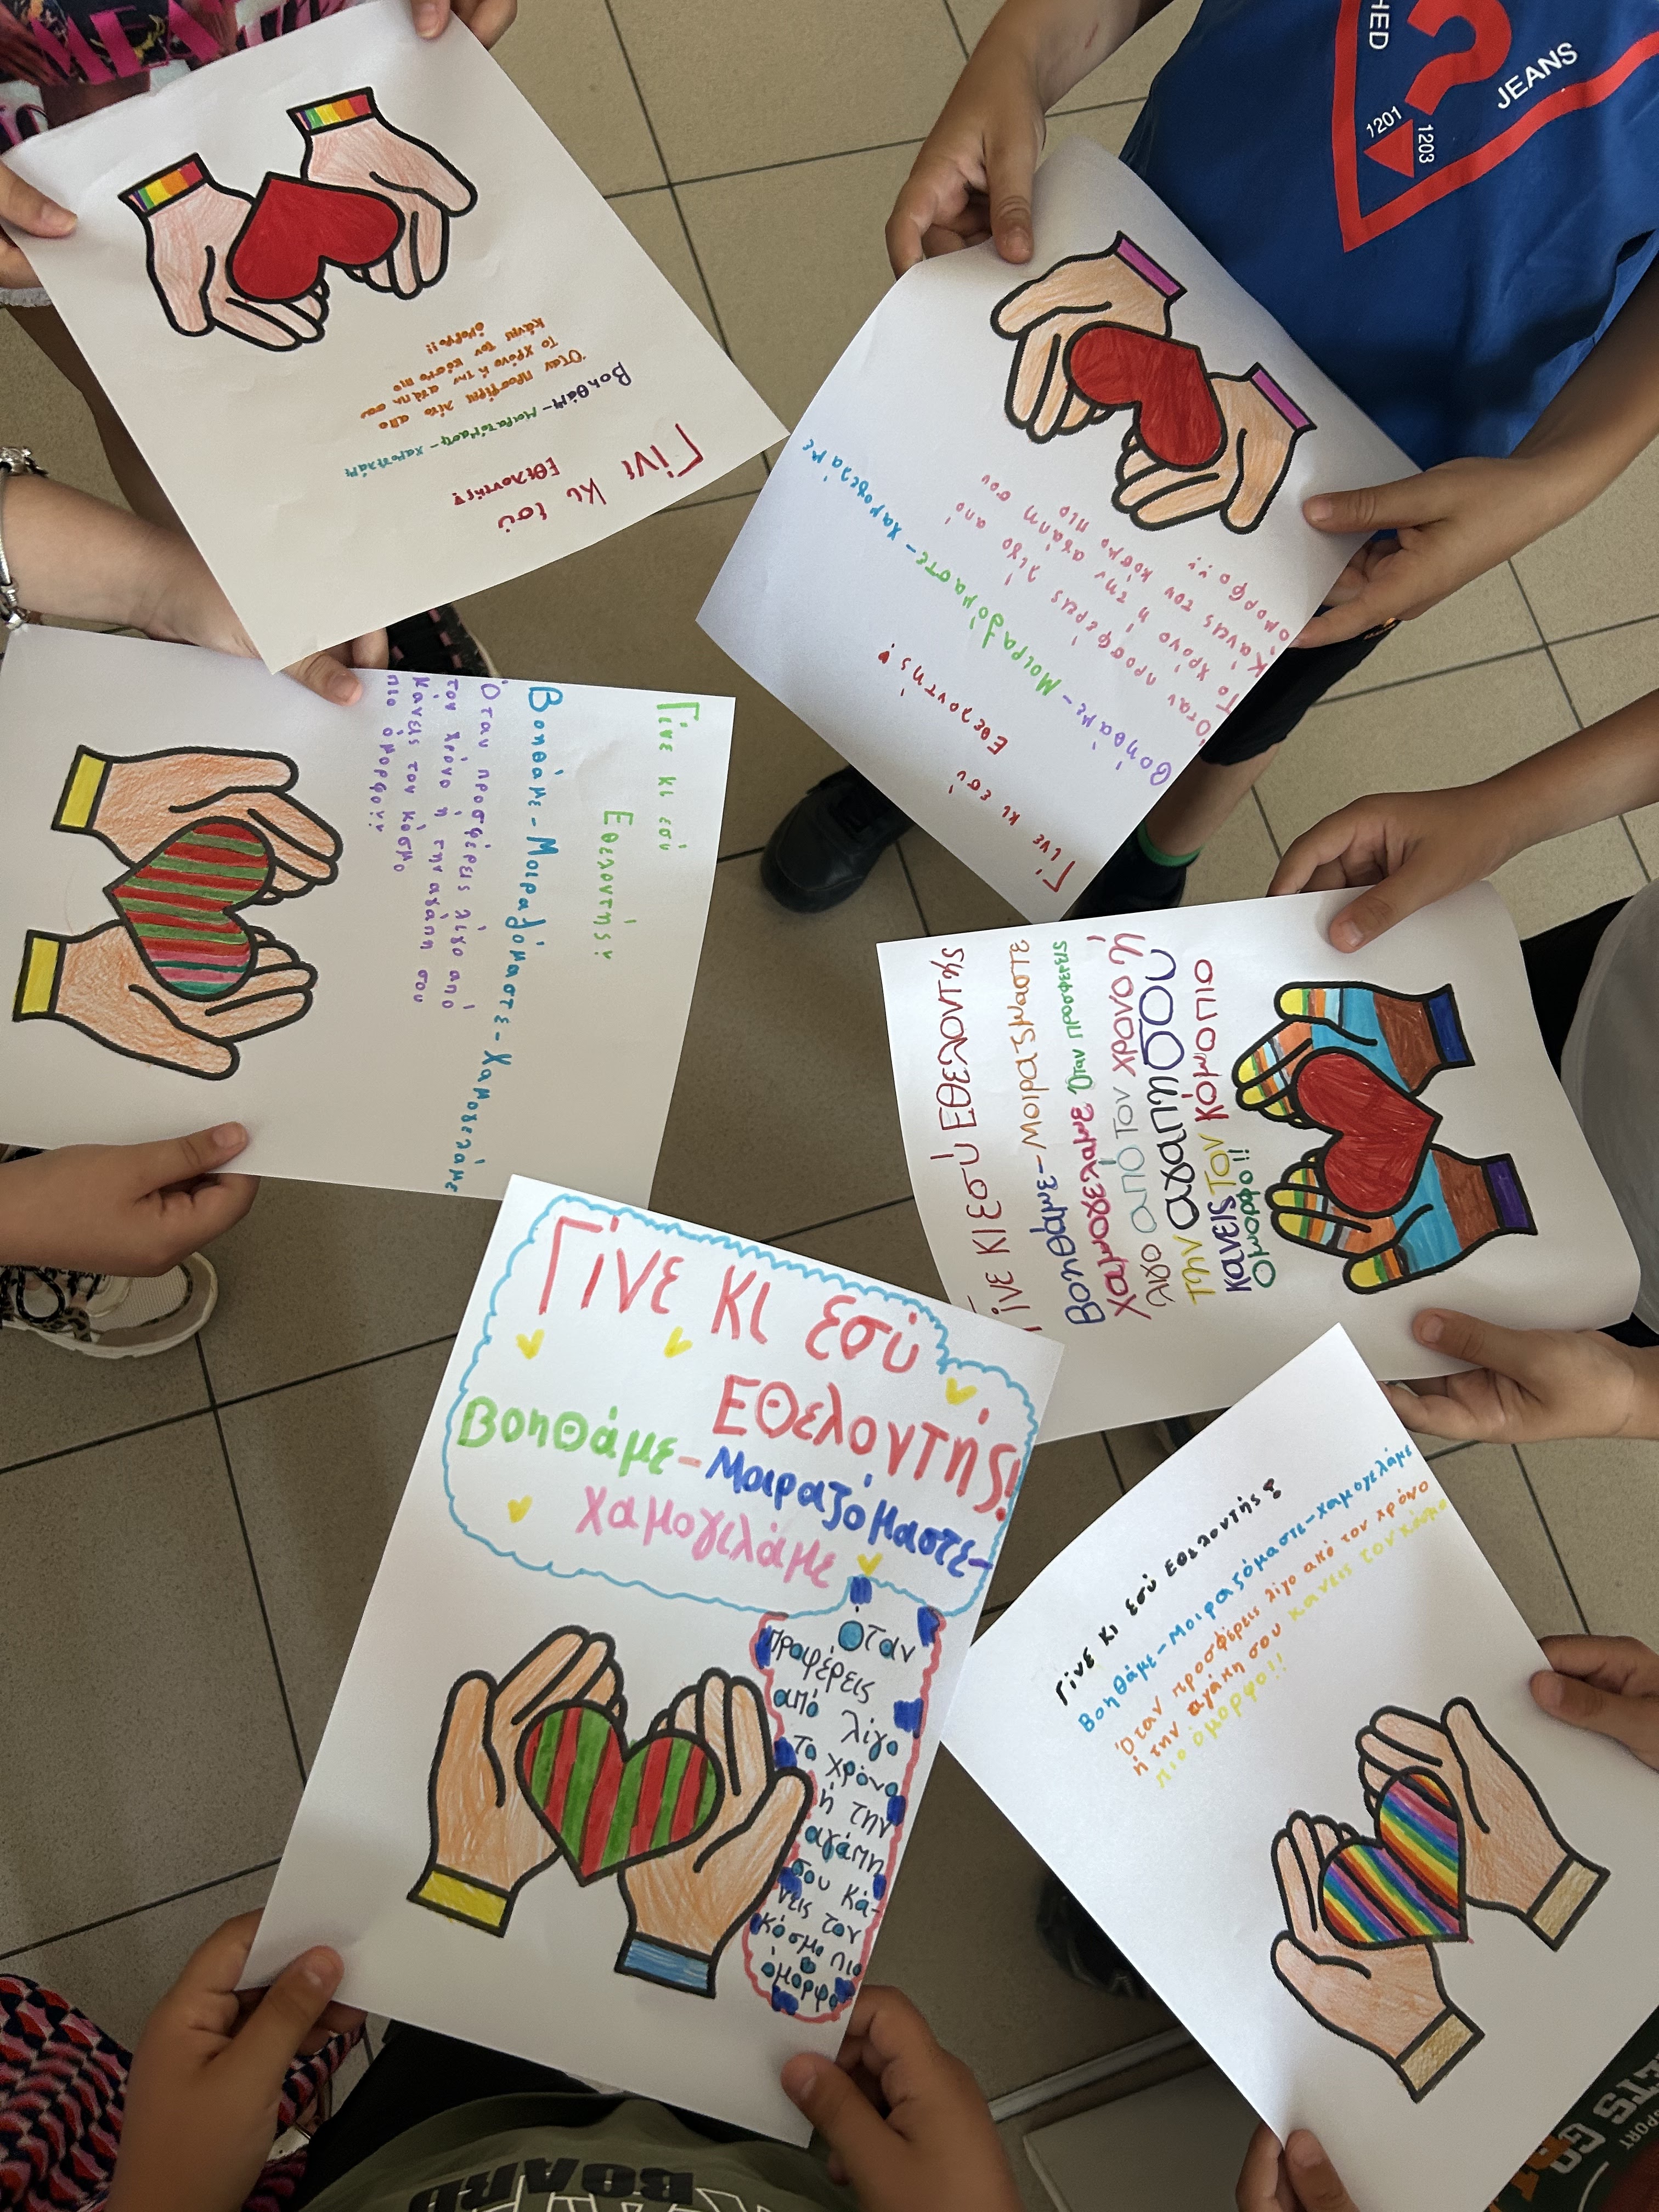 Γίνε κι εσύ
Εθελοντής!
Βοηθάμε-Μοιραζόμαστε-
χαμογελάμε
Όταν
πραφέρεις
από λίγο
το χρόνο
ή την
αγάπη
σου κά-
νεις τον
κόσμο πιο
όμορφο
Γίνε κι εσύ
Εθελοντής!
Βοηθάμε-Μοιραζόμαστε-χαμογελάμε
Όταν
το χρόνο ή την
κάνεις τον κόσμο πιο
όμορφο!!
Γίνε κι εσύ
Εθελοντής!
Βοηθάμε-Μοιραζόμαστε-χαμογελαμε
Όταν προσφέρεις λίγο από
Το χρόνο ή την αγάπη σου
Κάνεις τον κοσμο πιο
ομορφο!!
Γίνε κι εσύ
Εθελοντής!
Βοηθάμε-Μοιραζόμαστε-χαμογελάμε
Όταν προσφέρεις λίγο από
τον χρόνο ή την αγάπη σου
κανεις τον κοσμο
πιο όμορφο!!
Γίνε ΚΙ Εσύ Εθελοντής
Βοηθάμε-Μοιραζμαστε
χαμογελαμε Όταν προσφερεις
λιγο από τον χρονο ή
την αγαπη σου
κανεις τον κόμω πιο
ομορφο!!
Γίνε κι εσύ Εθελοντής!
Βοηθάμε-Μοιραζόμαστε-χαμογελάμε
Όταν προσφέρεις λίγο από τον χρόνο
ή την αγάπη σου κανεις τον κόσμο
πιο όμορφο!!
HED
JEANS
1201
1203
BOARD
SPORT